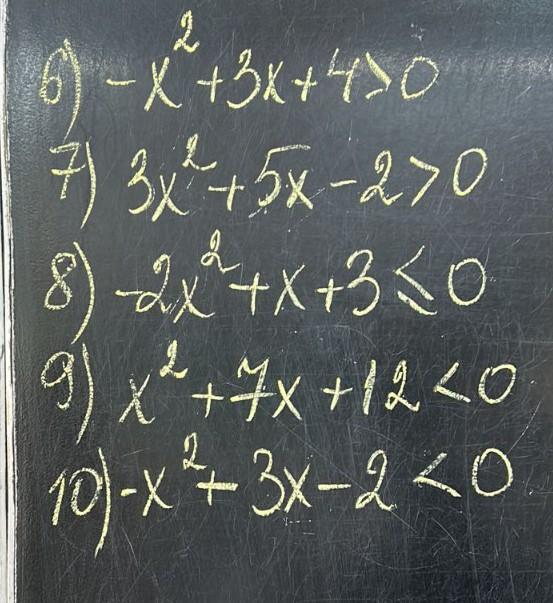 6) -x² + 3x + 4 > 0
7) 3x² + 5x - 2 > 0
8) -2x² + x + 3 ≤ 0
9) x² + 7x + 12 < 0
10) -x² + 3x - 2 < 0